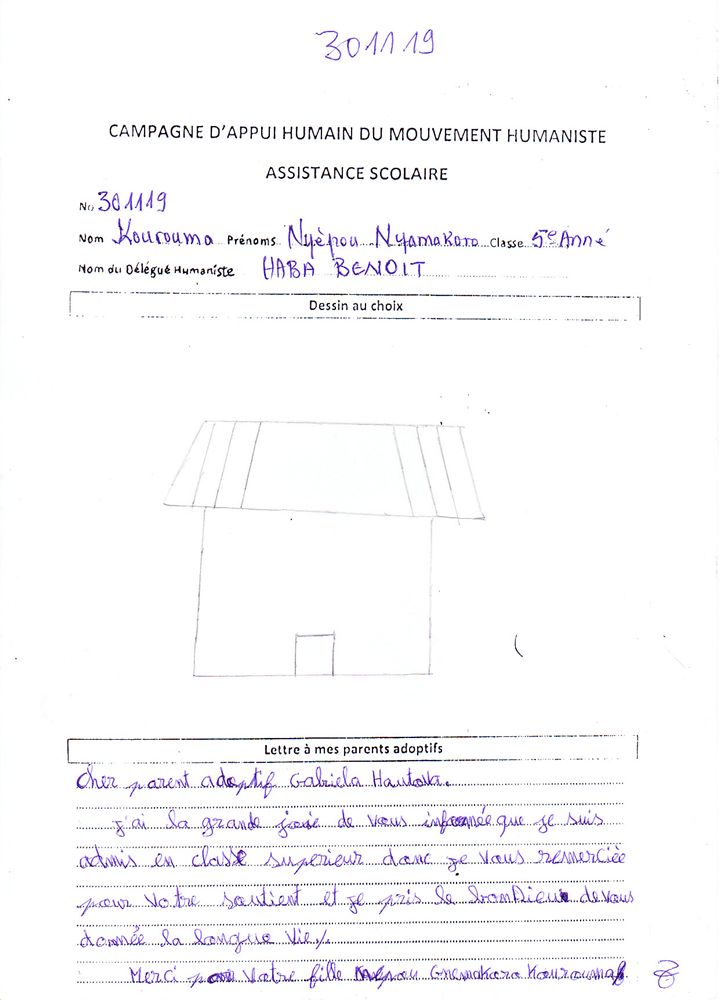 301119
CAMPAGNE D'APPUI HUMAIN DU MOUVEMENT HUMANISTE
ASSISTANCE SCOLAIRE
No 301119
Nom Kourouma Prénoms Nyèpou Nyamakoro Classe 5e Anné
Nom du Délégué Humaniste HABA BENOIT
Dessin au choix
Lettre à mes parents adoptifs
Cher parent adoptif Gabriela Hautova.
j'ai la grande joie de vous informée que je suis
admis en classe superieur donc je vous remerciée
pour votre soutient et je pris le bonDieu de vous
donnée la longue vie./.
Merci votre fille Gnemakoro Kourouma